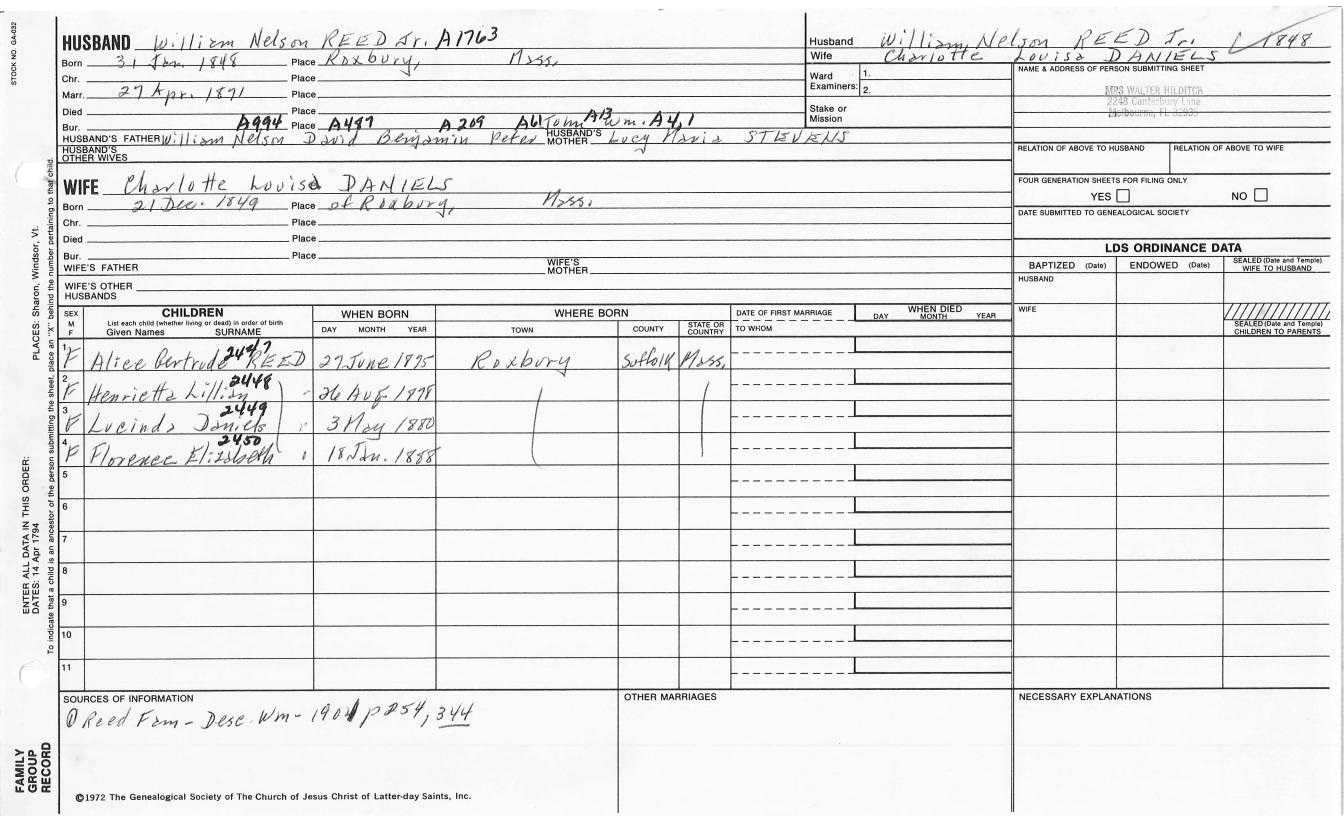 STOCK NO GA-032
HUSBAND William Nelson REED Jr. A1763
Born 31 Jan. 1848 Place Roxbury, Mass.
Chr. Place
Marr. 27 Apr. 1871 Place
Died Place
Bur. Place
A994 A447 A209 A61 John A13 Wm. A4,1
HUSBAND'S FATHER William Nelson David Benjamin Peter HUSBAND'S MOTHER Lucy Maria STEVENS
HUSBAND'S OTHER WIVES
WIFE Charlotte Louisa DANIELS
Born 21 Dec. 1849 Place of Roxbury, Mass.
Chr. Place
Died Place
Bur. Place
WIFE'S FATHER WIFE'S MOTHER
WIFE'S OTHER HUSBANDS
Husband William Nelson REED Jr. 1848
Wife Charlotte Louisa DANIELS
Ward Examiners: 1.
2.
Stake or Mission
NAME & ADDRESS OF PERSON SUBMITTING SHEET
MRS WALTER HILDITCH
2248 Canterbury Lane
Melbourne, FL 32935
RELATION OF ABOVE TO HUSBAND RELATION OF ABOVE TO WIFE
FOUR GENERATION SHEETS FOR FILING ONLY
YES NO
DATE SUBMITTED TO GENEALOGICAL SOCIETY
LDS ORDINANCE DATA
BAPTIZED (Date) ENDOWED (Date) SEALED (Date and Temple) WIFE TO HUSBAND
HUSBAND
WIFE
SEALED (Date and Temple) CHILDREN TO PARENTS
SEX M F
CHILDREN
List each child (whether living or dead) in order of birth
Given Names SURNAME
WHEN BORN
DAY MONTH YEAR
WHERE BORN
TOWN COUNTY STATE OR COUNTRY
DATE OF FIRST MARRIAGE
TO WHOM
WHEN DIED
DAY MONTH YEAR
2447
1 F Alice Gertrude REED 27 June 1875 Roxbury Suffolk Mass.
2448
2 F Henrietta Lillian 26 Aug 1878
2449
3 F Lucinda Daniels 3 May 1880
2450
4 F Florence Elizabeth 18 Jan. 1888
5
6
7
8
9
10
11
SOURCES OF INFORMATION
① Reed Fam - Desc. Wm - 1901 p 254, 344
OTHER MARRIAGES
NECESSARY EXPLANATIONS
©1972 The Genealogical Society of The Church of Jesus Christ of Latter-day Saints, Inc.
FAMILY GROUP RECORD
ENTER ALL DATA IN THIS ORDER:
DATES: 14 Apr 1794 PLACES: Sharon, Windsor, Vt.
To indicate that a child is an ancestor of the person submitting the sheet, place an "X" behind the number pertaining to that child.